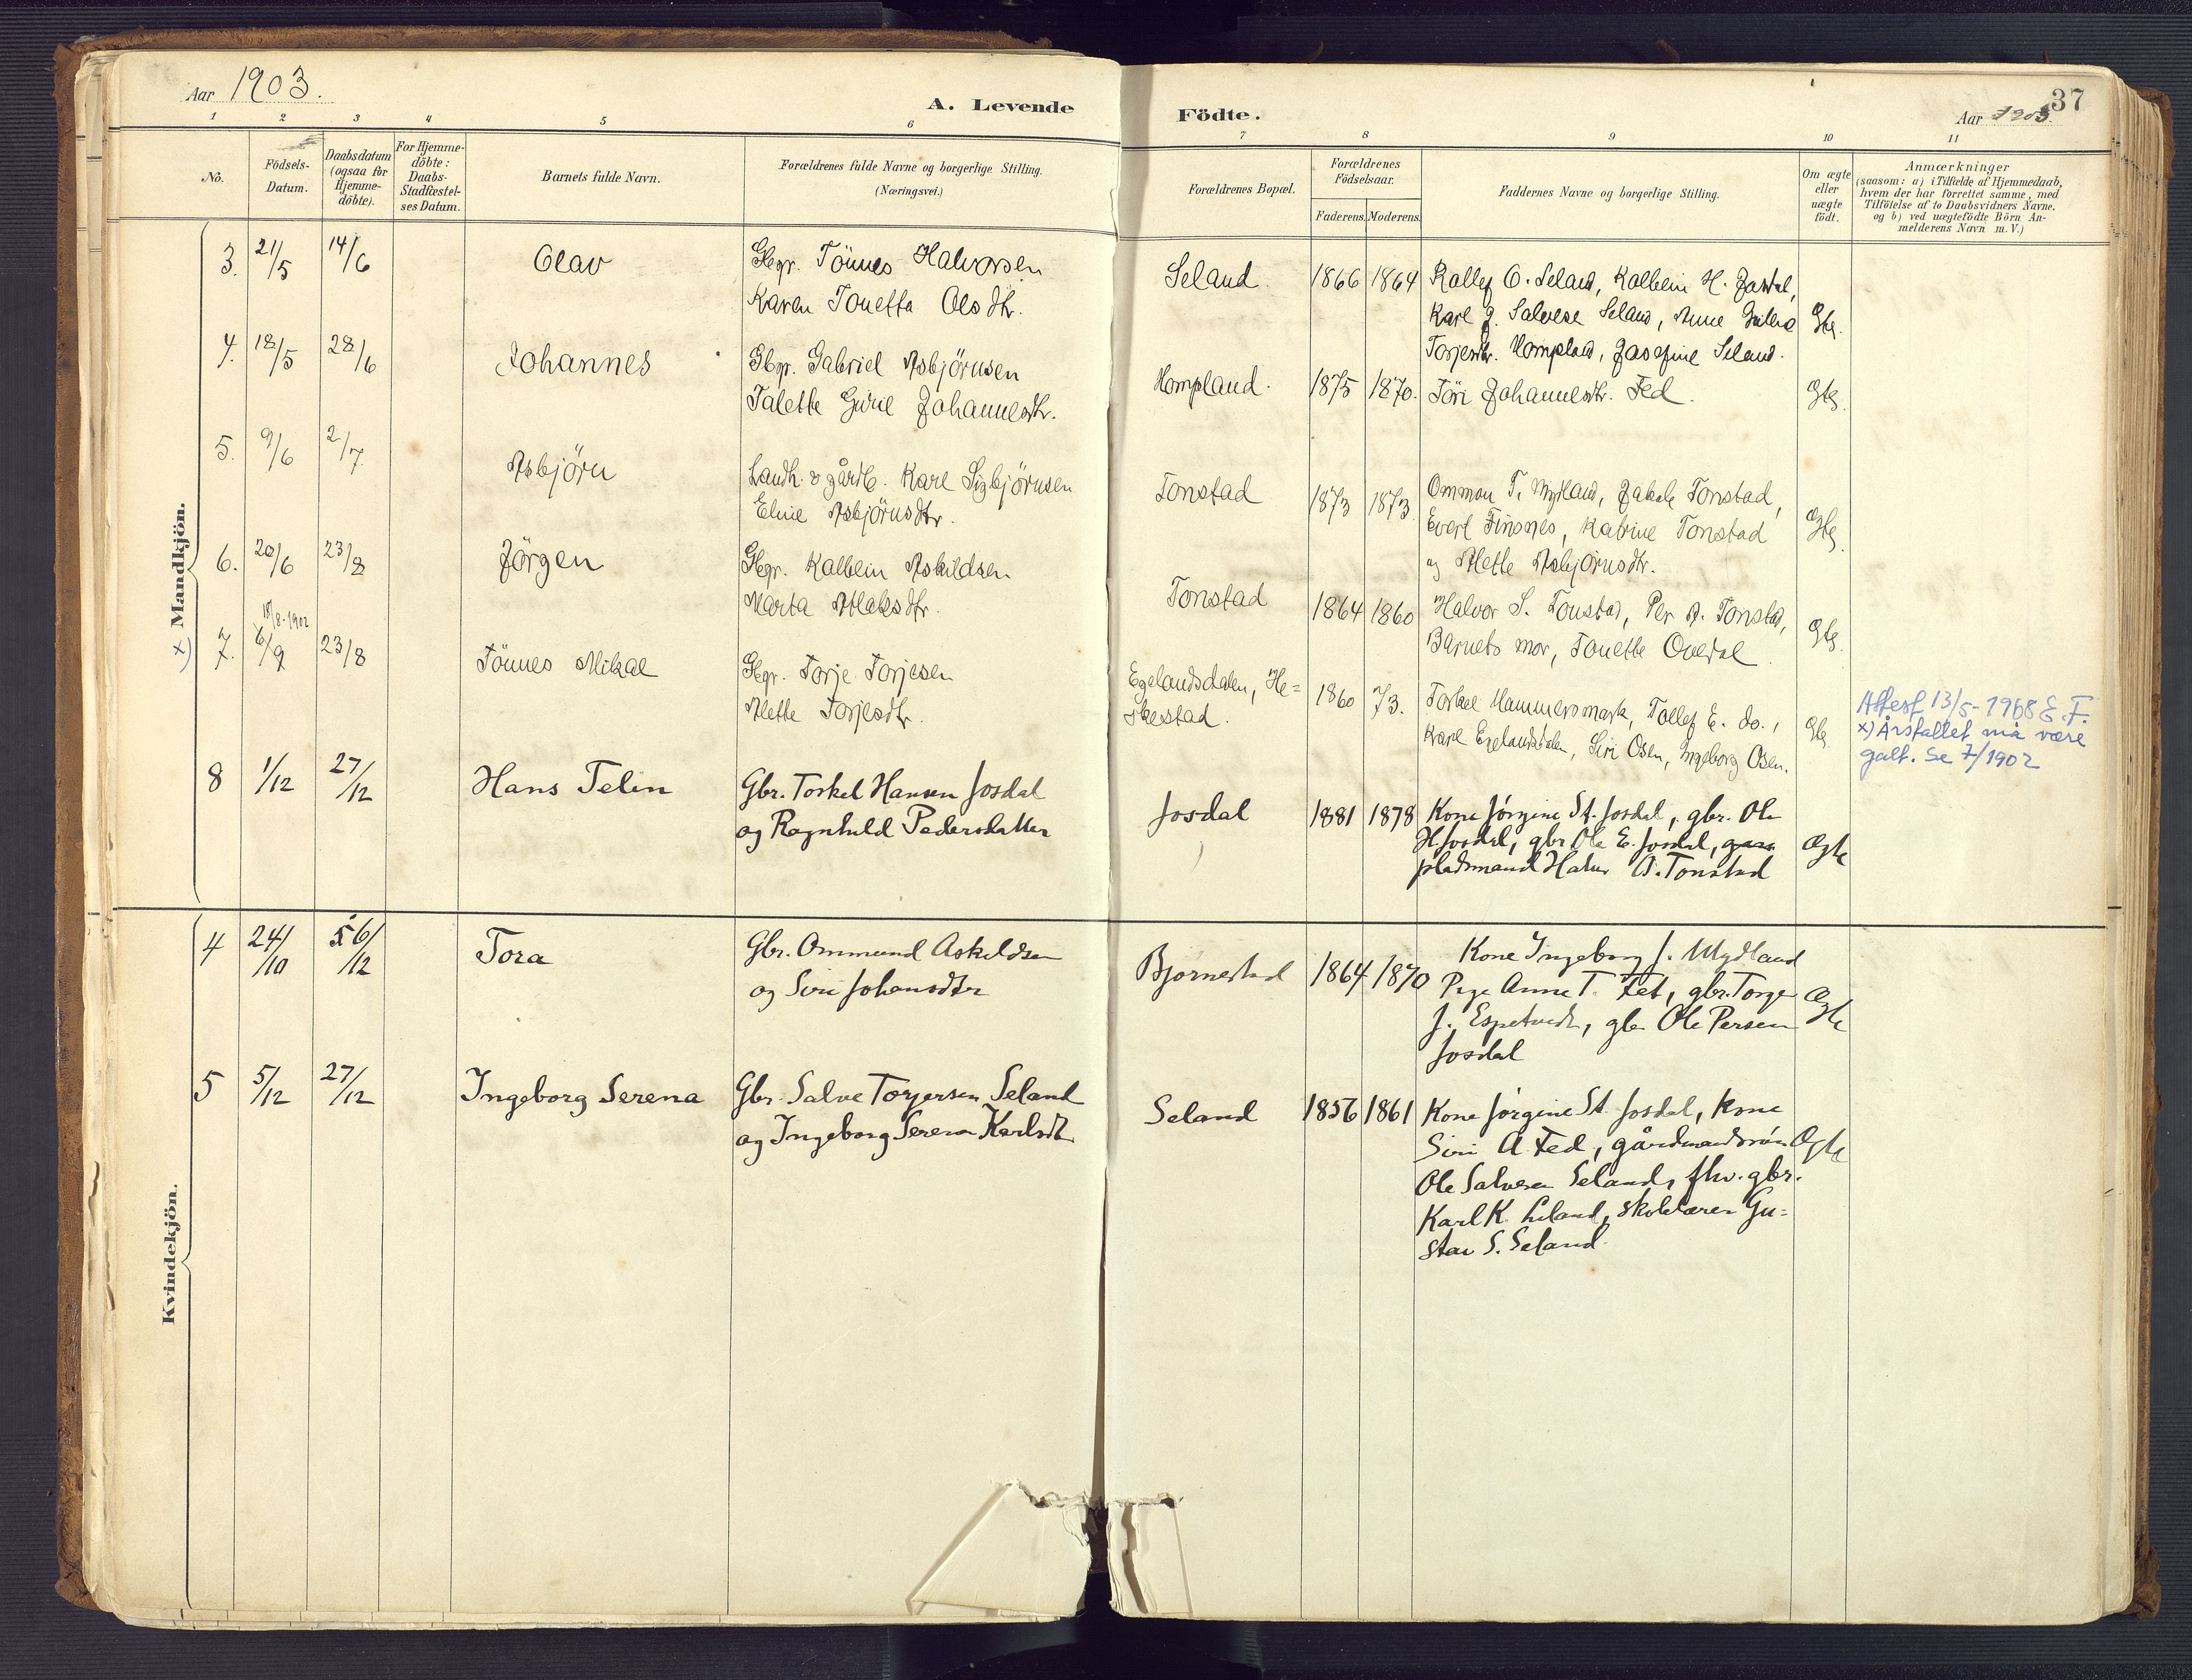 Aar 1903.
A. Levende
Födte.
Aar 1903.
37
1 2 3 4 5 6 7 8 9 10 11
No.
Födsels-
Datum.
Daabsdatum
(ogsaa for
Hjemme-
döbte).
For Hjemme-
döbte:
Daabs-
Stadfæstel-
ses Datum.
Barnets fulde Navn.
Forældrenes fulde Navne og borgerlige Stilling.
(Næringsvei.)
Forældrenes Bopæl.
Forældrenes
Födselsaar.
Faderens. Moderens.
Faddernes Navne og borgerlige Stilling.
Om ægte
eller
uægte
födt.
Anmærkninger
(saasom: a) i Tilfælde af Hjemmedaab,
hvem der har forrettet samme, med
Tilföielse af to Daabsvidners Navne.
og b) ved uægtefödte Börn An-
melderens Navn m. V.)
Mandkjön.
3. 21/5 14/6 Olav
Gbgr. Tönnes Halvorsen
Karen Tonetta Olsdtr.
Seland. 1866 1864
Rollef O. Seland, Kolbein H. Josdal,
Karl J. Salvese Seland, Anne
Torjesdtr. Hompland, Josefine Seland.
Ægte.
4. 18/5 28/6 Johannes
Gbgr. Gabriel Asbjörnsen
Talette Gurie Johannesdtr.
Hompland. 1875 1870.
Töri Johannesdtr. Fed.
Ægte.
5. 9/6 2/7 Asbjörn
Landh. & gårdb. Karl Sigbjörnsen
Eline Asbjörnsdtr.
Tonstad 1873 1873
Ommon T. Mydland, Jakob Tonstad,
Evert Finsnes, Katrine Tonstad
og Mette Asbjörnsdtr.
Ægte.
6. 20/6 23/8 Jörgen
Gbgr. Kolbein Askildsen
Marta Atlaksdtr.
Tonstad 1864 1860
Halvor S. Tonstad, Per A. Tonstad,
Barnets mor, Tonette Ovedal.
Ægte.
x) 7. 18/8-1902 6/9 23/8 Tönnes Mikal
Gbgr. Torje Torjesen
Mette Torjesdtr.
Egelandsdalen, He=
skestad. 1860 73.
Torkel Hammersmark, Tollef E. do.,
Karl Egelandsdalen, Siri Osen, Ingeborg Osen.
Ægte.
Attest 13/5-1968 E.F.
x) Årstallet må være
galt. Se 7/1902
8 1/12 27/12 Hans Telin
Gbr. Torkel Hansen Josdal
og Ragnhild Pedersdatter
Josdal 1881 1878
Kone Jørgine St. Josdal, gbr. Ole
H Josdal, gbr Ole E. Josdal,
pladsmand Halvor O. Tonstad
Ægte
Kvindekjön.
4 24/10 6/12 Tora
Gbr. Ommund Askildsen
og Siri Johansdtr
Bjørnestad 1864 1870
Kone Ingeborg J. Mydland
Pige Anne T. Fet, gbr. Torge
J. Espetvedt, gbr Ole Persen
Josdal
Ægte
5 5/12 27/12 Ingeborg Serena
Gbr. Salve Torjersen Seland
og Ingeborg Serena Karlsdtr
Seland 1856 1861
Kone Jørgine St. Josdal, Kone
Siri A. Fed, gårdmandssøn
Ole Salvesen Seland, fhv. gbr.
Karl K. Liland, skolelærer Gu=
stav S. Seland.
Ægte